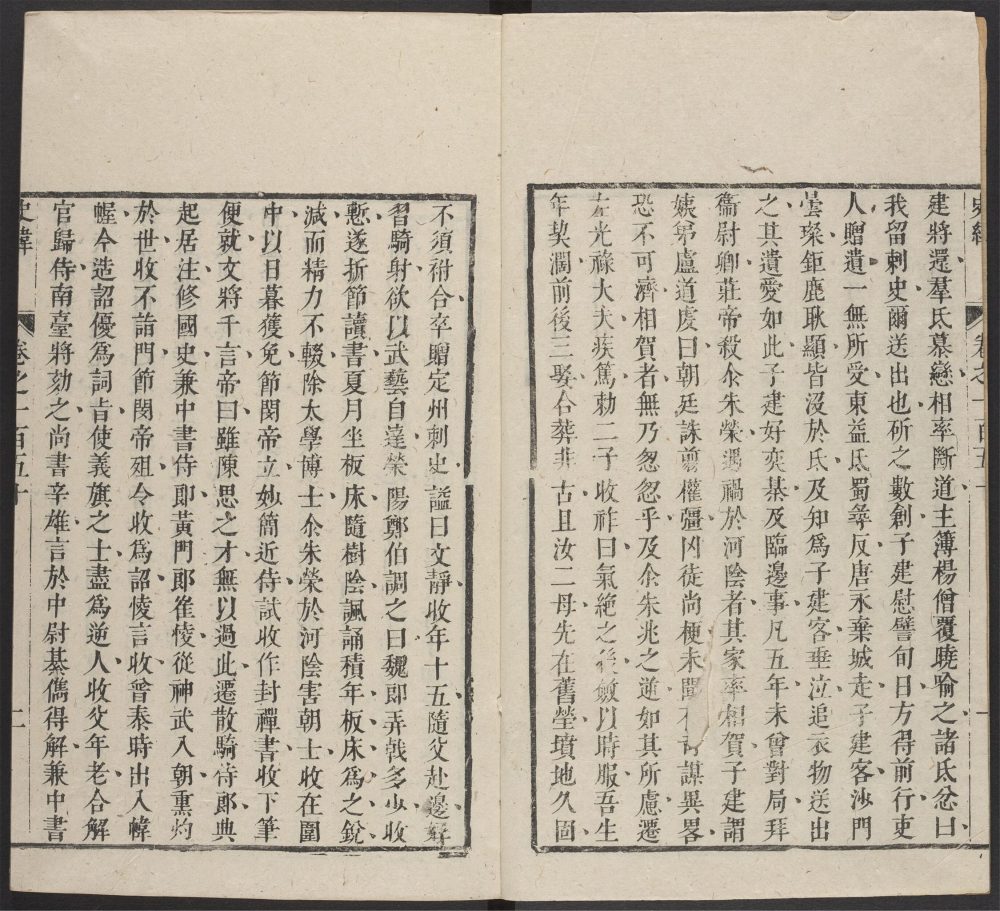 史緯 卷之一百五十 一
建將還羣氐慕戀相率斷道主簿楊僧覆曉喻之諸氐忿曰
我留刺史爾送出也斫之數創子建慰譬旬日方得前行吏
人贈遺一無所受東益氐蜀尋反唐永棄城走子建客沙門
曇璨鉅鹿耿顯皆沒於氐及知爲子建客垂泣追衣物送出
之其遺愛如此子建好奕棊及臨邊事凡五年未曾對局拜
衞尉卿莊帝殺尒朱榮遇禍於河陰者其家率相賀子建謂
姨弟盧道虔曰朝廷誅翦權彊凶徒尚梗未聞有奇謀異畧
恐不可濟相賀者無乃忽忽乎及尒朱兆之逆如其所慮遷
左光祿大夫疾篤勅二子收祚曰氣絕之後斂以時服吾生
年契濶前後三娶合葬非古且汝二母先在舊塋墳地久固
不須祔合卒贈定州刺史謚曰文靜收年十五隨父赴邊好
習騎射欲以武藝自達滎陽鄭伯調之曰魏郎弄戟多少收
慙遂折節讀書夏月坐板床隨樹陰諷誦積年板床爲之銳
減而精力不輟除太學博士尒朱榮於河陰害朝士收在圍
中以日暮獲免節閔帝立妙簡近侍試收作封禪書收下筆
便就文將千言帝曰雖陳思之才無以過此遷散騎侍郎典
起居注修國史兼中書侍郎黃門郎崔㥄從神武入朝熏灼
於世收不詣門節閔帝殂令收爲詔㥄言收曾泰時出入幃
幄今造詔優爲詞旨使義旗之士盡爲逆人收父年老合解
官歸侍南臺將劾之尚書辛雄言於中尉綦儁得解兼中書
史緯 卷之一百五十 二